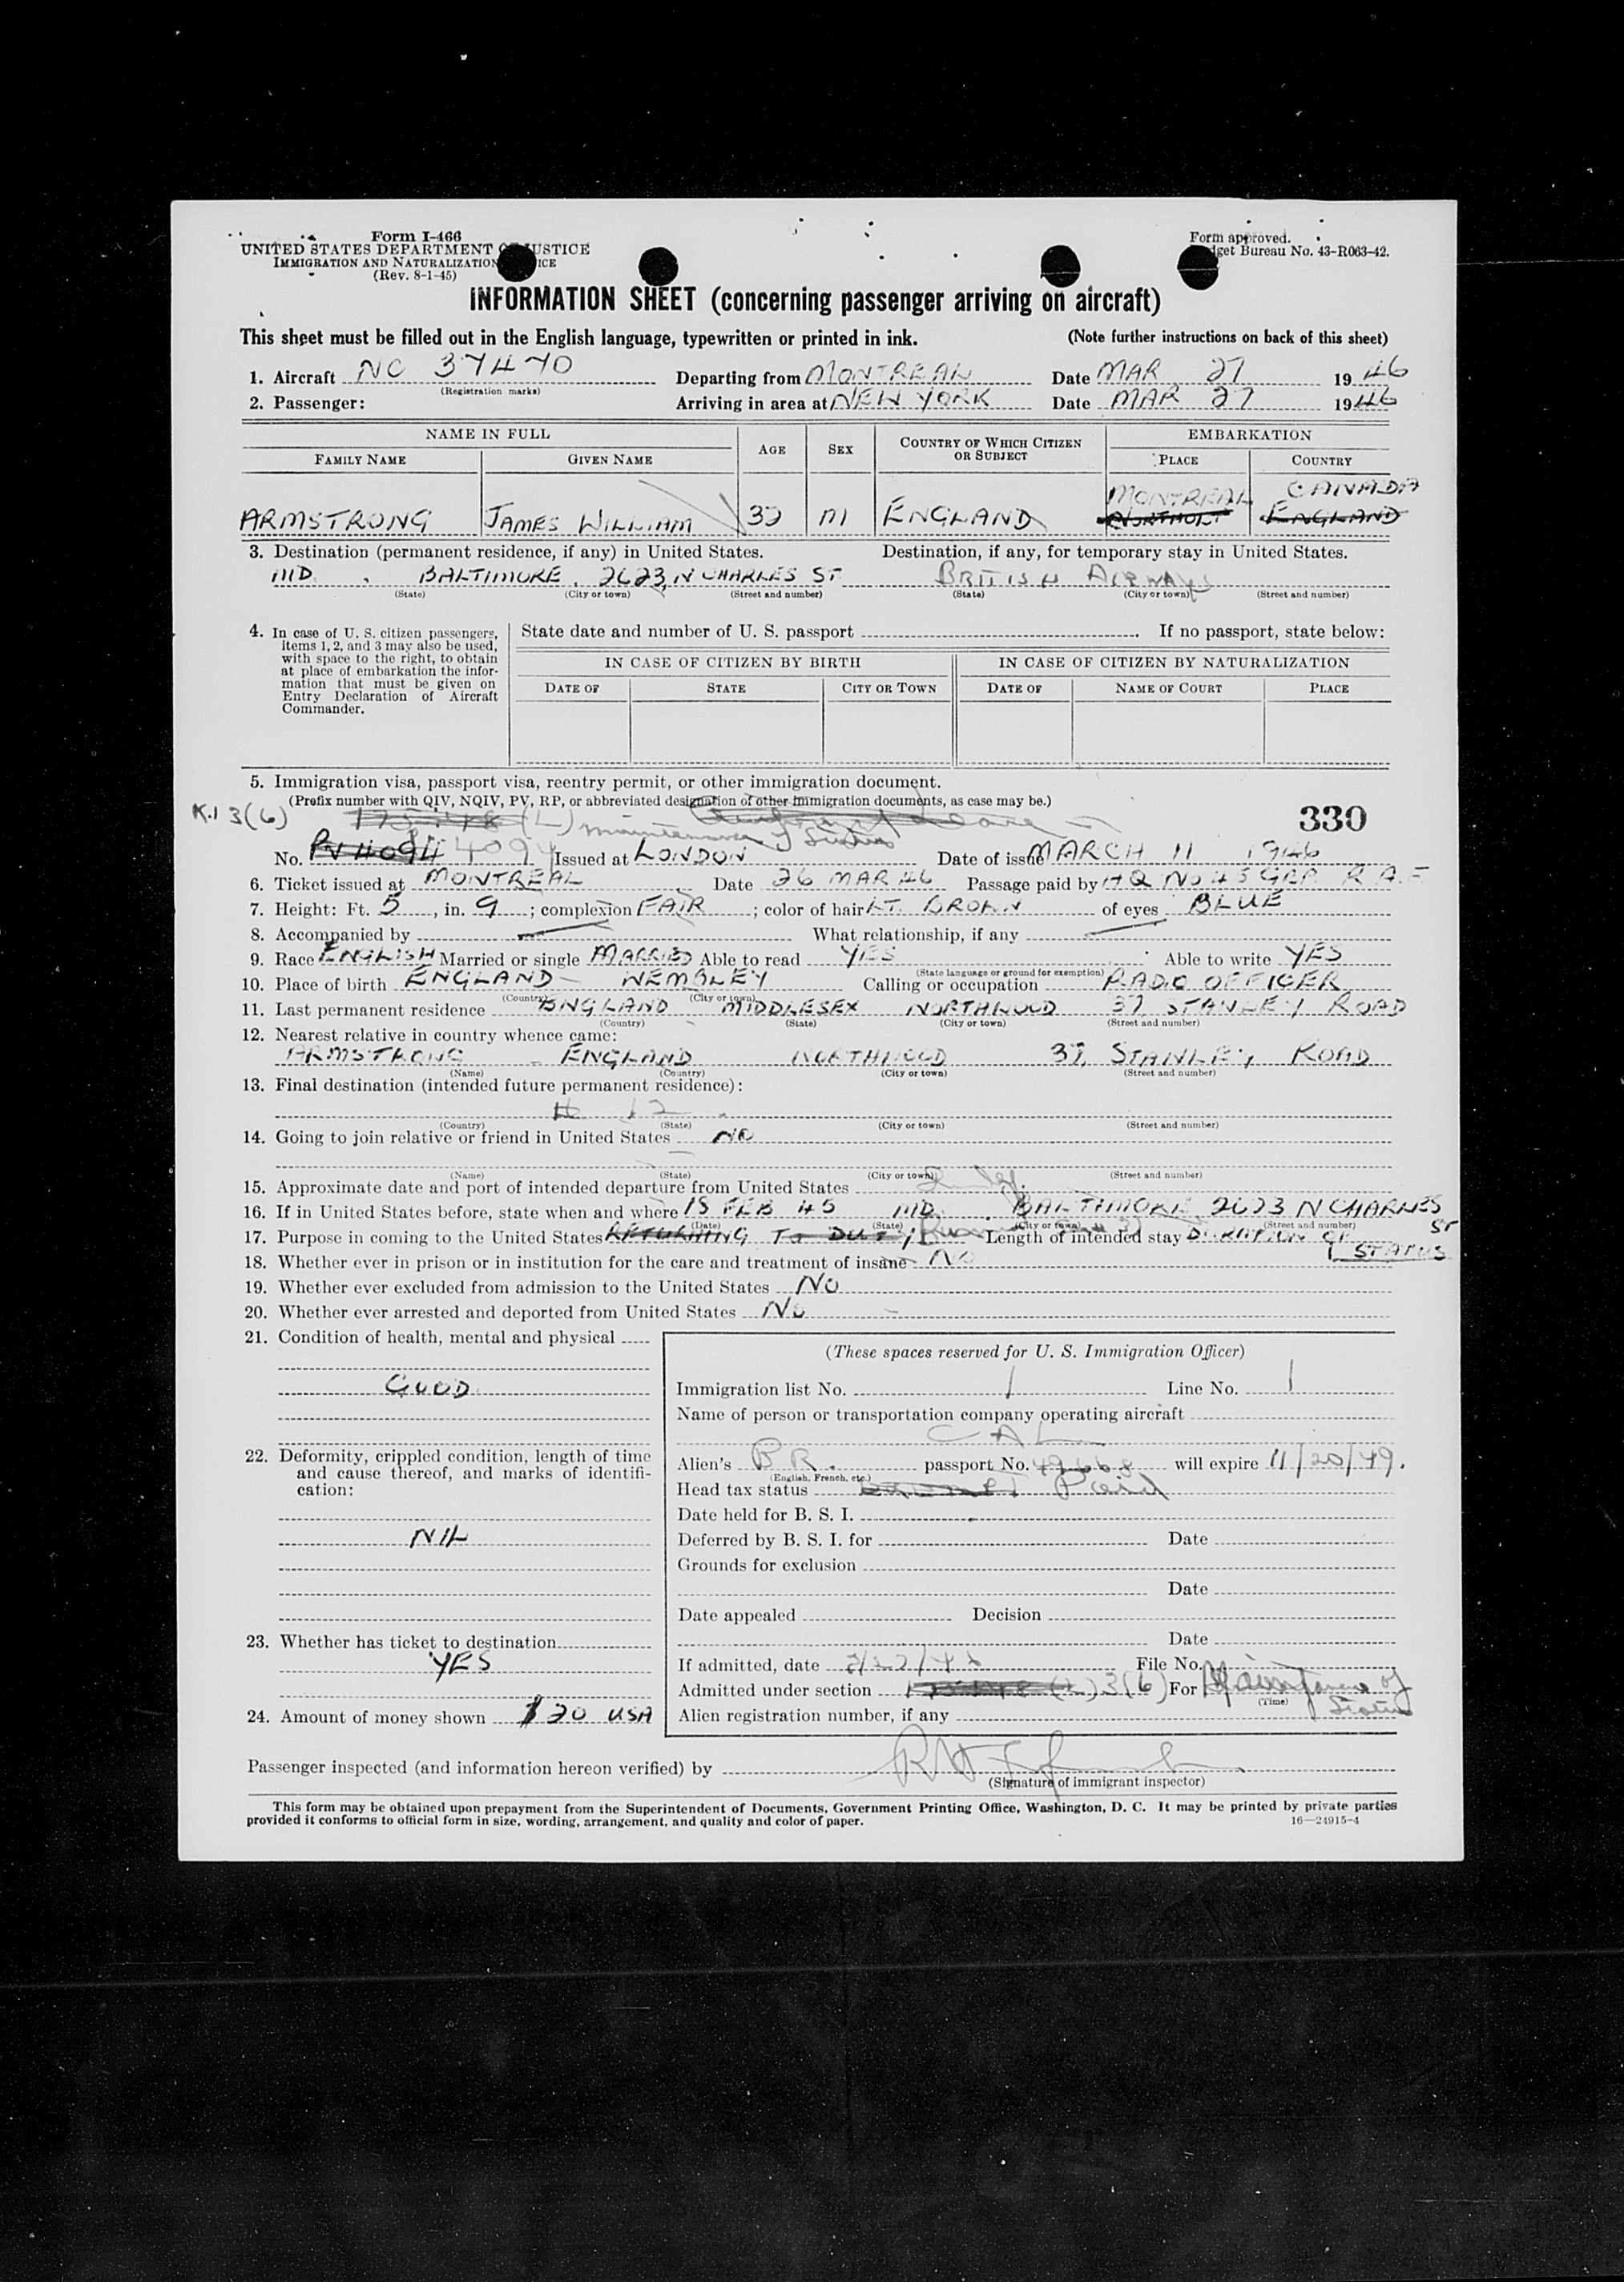 Form I-466
UNITED STATES DEPARTMENT OF JUSTICE
IMMIGRATION AND NATURALIZATION
(Rev. 8-1-45)
Form approved.
get Bureau No. 43-R063-42.
INFORMATION SHEET (concerning passenger arriving on aircraft)
This sheet must be filled out in the English language, typewritten or printed in ink. (Note further instructions on back of this sheet)
1. Aircraft NC 37470 Departing from MONTREAL Date MAR 27 1946
(Registration marks)
2. Passenger: Arriving in area at NEW YORK Date MAR 27 1946
NAME IN FULL AGE SEX COUNTRY OF WHICH CITIZEN OR SUBJECT EMBARKATION
FAMILY NAME GIVEN NAME PLACE COUNTRY
MONTREAL CANADA
ARMSTRONG JAMES WILLIAM M ENGLAND ENGLAND
3. Destination (permanent residence, if any) in United States. Destination, if any, for temporary stay in United States.
MD. BALTIMORE. 2623, N CHARLES ST. BRITISH AIRWAYS
(State) (City or town) (Street and number) (State) (City or town) (Street and number)
4. In case of U. S. citizen passengers, items 1, 2, and 3 may also be used, with space to the right, to obtain at place of embarkation the information that must be given on Entry Declaration of Aircraft Commander.
State date and number of U. S. passport . If no passport, state below:
IN CASE OF CITIZEN BY BIRTH IN CASE OF CITIZEN BY NATURALIZATION
DATE OF STATE CITY OR TOWN DATE OF NAME OF COURT PLACE
5. Immigration visa, passport visa, reentry permit, or other immigration document.
(Prefix number with QIV, NQIV, PV, RP, or abbreviated designation of other immigration documents, as case may be.)
K.1 3(6) maintenance of Status 330
No. PV 4094 4094 Issued at LONDON Date of issue MARCH 11 1946
6. Ticket issued at MONTREAL Date 26 MAR 46 Passage paid by HQ No 45 GRP R.A.F
7. Height: Ft. 5, in. 9; complexion FAIR; color of hair LT. BROWN of eyes BLUE
8. Accompanied by What relationship, if any
9. Race ENGLISH Married or single MARRIED Able to read YES Able to write YES
(State language or ground for exemption)
10. Place of birth ENGLAND - WEMBLEY Calling or occupation RADIO OFFICER
(Country) (City or town)
11. Last permanent residence ENGLAND MIDDLESEX NORTHWOOD 37, STANLEY ROAD
(Country) (State) (City or town) (Street and number)
12. Nearest relative in country whence came:
ARMSTRONG - ENGLAND NORTHWOOD 37, STANLEY ROAD
(Name) (Country) (City or town) (Street and number)
13. Final destination (intended future permanent residence):
# 12
(Country) (State) (City or town) (Street and number)
14. Going to join relative or friend in United States NO
(Name) (State) (City or town) (Street and number)
15. Approximate date and port of intended departure from United States
16. If in United States before, state when and where 15 FEB 45 MD. BALTIMORE 2623 N CHARLES ST
(Date) (State) (City or town) (Street and number)
17. Purpose in coming to the United States RETURNING TO DUTY Length of intended stay DURATION OF STATUS
18. Whether ever in prison or in institution for the care and treatment of insane NO
19. Whether ever excluded from admission to the United States NO
20. Whether ever arrested and deported from United States NO
21. Condition of health, mental and physical
GOOD
22. Deformity, crippled condition, length of time and cause thereof, and marks of identification:
NIL
23. Whether has ticket to destination
YES
24. Amount of money shown $20 USA
(These spaces reserved for U. S. Immigration Officer)
Immigration list No. 1 Line No. 1
Name of person or transportation company operating aircraft
CAL
Alien's BR. passport No. 49668 will expire 11/20/49.
(English, French, etc.)
Head tax status Paid
Date held for B. S. I.
Deferred by B. S. I. for Date
Grounds for exclusion
Date
Date appealed Decision
Date
If admitted, date 3/27/46 File No.
Admitted under section 3(6) For Maintenance of Status
(Time)
Alien registration number, if any
Passenger inspected (and information hereon verified) by
(Signature of immigrant inspector)
This form may be obtained upon prepayment from the Superintendent of Documents, Government Printing Office, Washington, D. C. It may be printed by private parties
provided it conforms to official form in size, wording, arrangement, and quality and color of paper. 16—24915-4